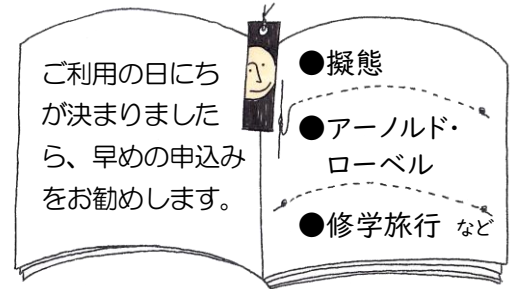 ご利用の日にち
が決まりました
ら、早めの申込み
をお勧めします。
●擬態
●アーノルド・
ローベル
●修学旅行 など